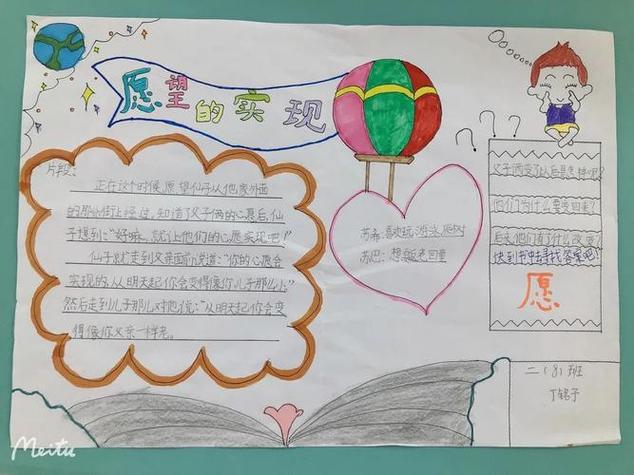 愿望的实现
片段:
正在这个时候,愿望仙子从他家外面
的那条街上经过,知道了父子俩的心愿后,仙
子想到:“好嘛,就让他们的心愿实现吧!”
仙子就走到父亲面前说道:“你的心愿会
实现的,从明天起你会变得像你儿子那么小”
然后走到儿子那儿对他说:“从明天起你会变
得像你父亲一样老。
苏希:喜欢玩游泳爬树
苏巴:想重
父子俩变了以后是怎样呢?
他们为什么要变回来?
后来他们有了什么改变?
快到书中去寻找答案吧
愿
二(8)班
丁铭子
Meitu